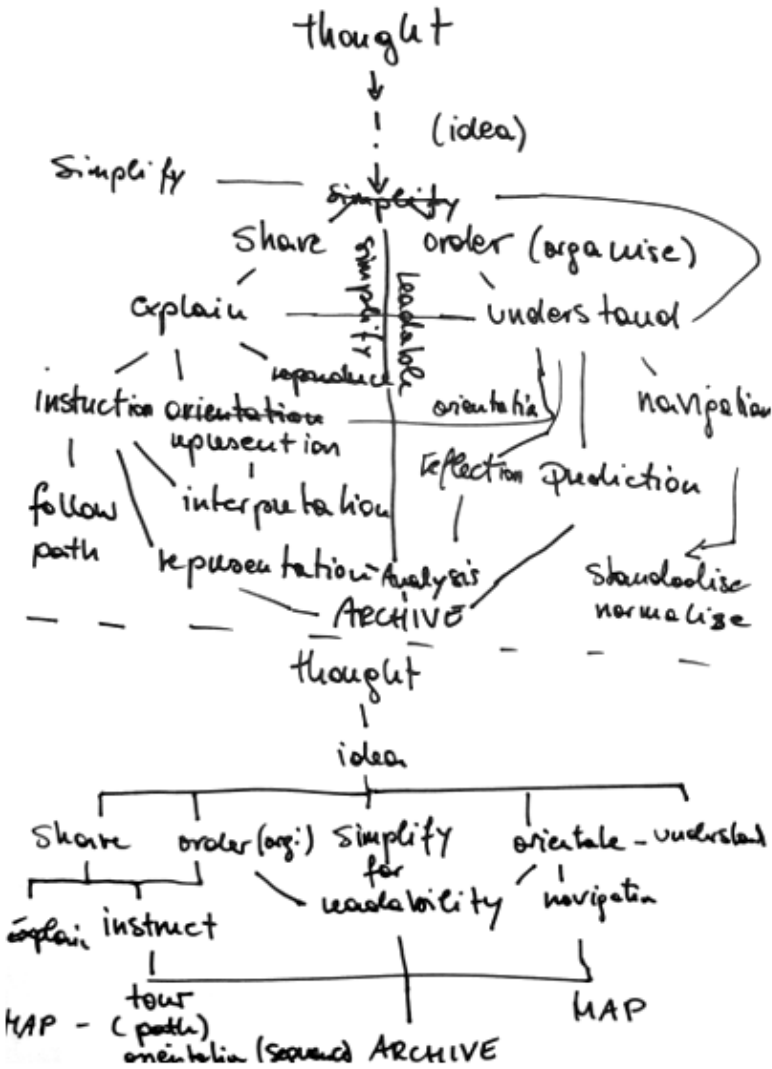 thought
(idea)
Simplify
simplify
Share
order (organise)
simplify
readable
explain
understand
reproduce
instuction
orientation
orientatia
navigation
represention
reflection
prediction
follow
path
interpretation
representation
Analysis
Standardise
normalise
ARCHIVE
thought
idea
Share
order (orgi)
Simplify
for
readability
orientate - understand
navigatia
explain
instruct
tour
MAP - (path)
MAP
orientatia (sequence)
ARCHIVE